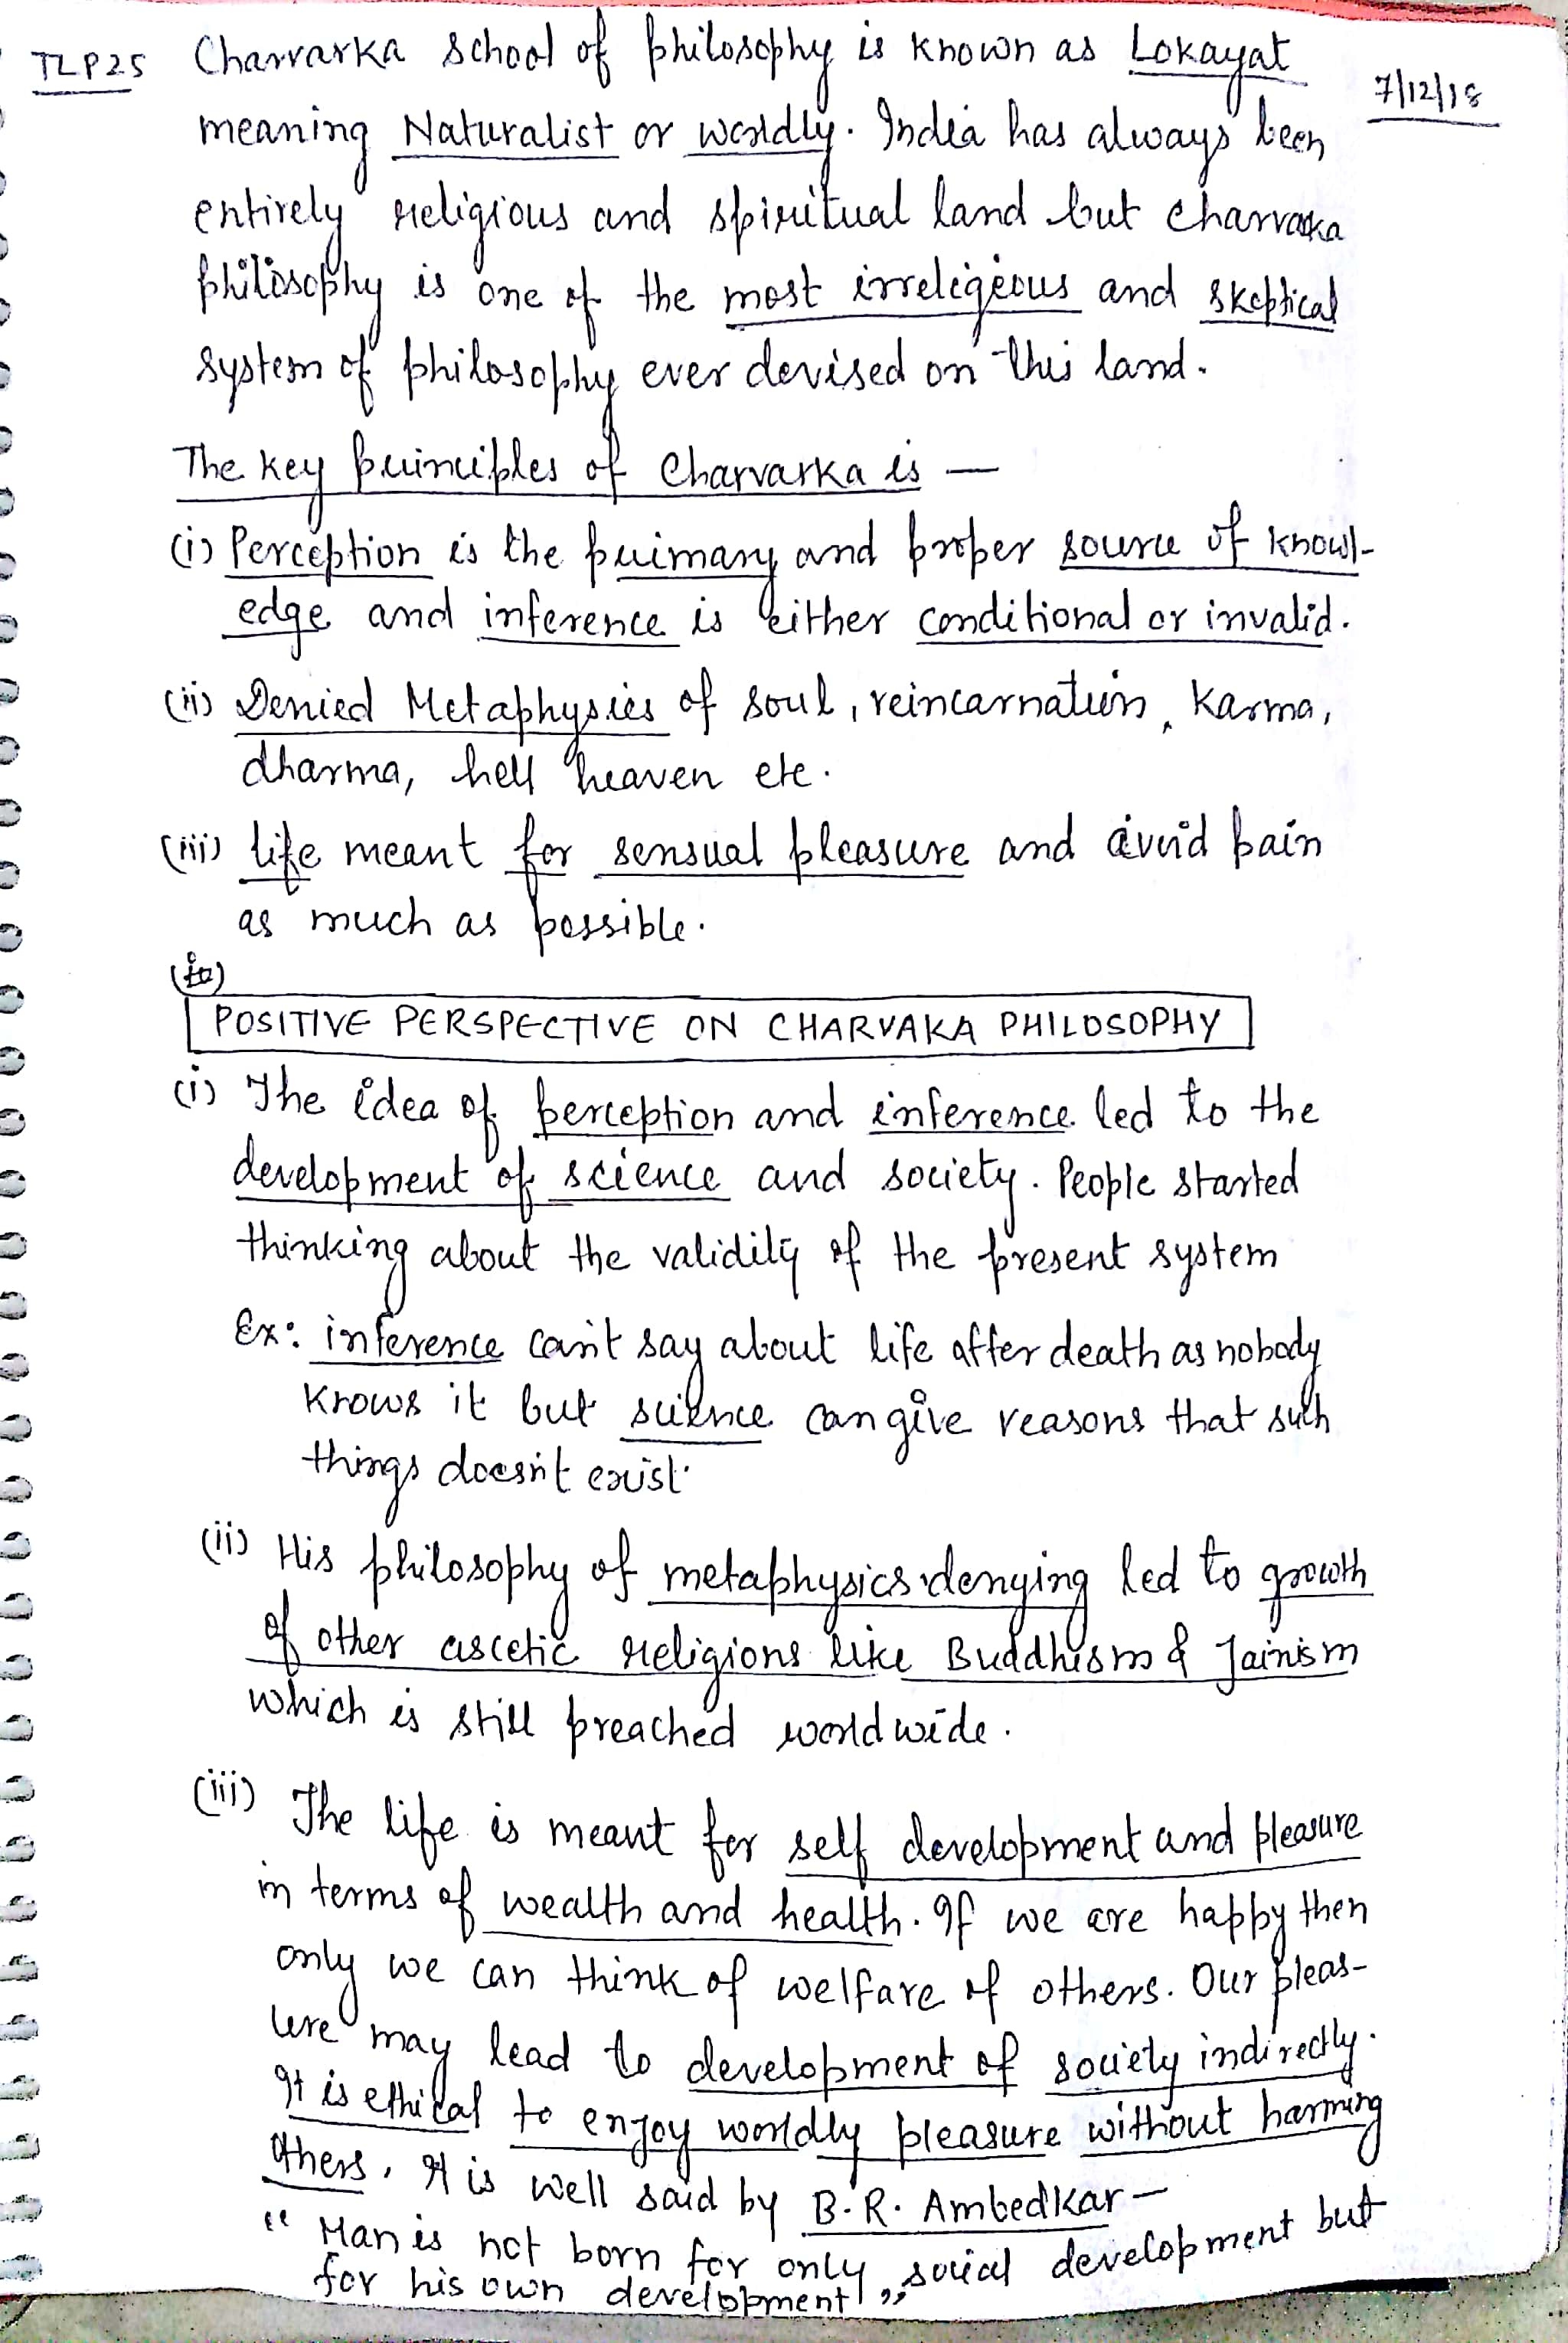 TLP25 Charvarka school of philosophy is known as Lokayat
7/12/18
meaning Naturalist or worldly. India has always been
entirely religious and spiritual land but charvaka
philosophy is one of the most irreligious and skeptical
system of philosophy ever devised on this land.
The key principles of Charvarka is —
(i) Perception is the primary and proper source of knowl-
edge and inference is either conditional or invalid.
(ii) Denied Metaphysics of soul, reincarnation, Karma,
dharma, hell heaven etc.
(iii) life meant for sensual pleasure and avoid pain
as much as possible.
POSITIVE PERSPECTIVE ON CHARVAKA PHILOSOPHY
(i) The idea of perception and inference led to the
development of science and society. People started
thinking about the validity of the present system
Ex: inference can't say about life after death as nobody
knows it but science can give reasons that such
things doesn't exist.
(ii) His philosophy of metaphysics denying led to growth
of other ascetic religions like Buddhism & Jainism
which is still preached world wide.
(iii) The life is meant for self development and pleasure
in terms of wealth and health. If we are happy then
only we can think of welfare of others. Our pleas-
ure may lead to development of society indirectly.
It is ethical to enjoy worldly pleasure without harming
others. It is well said by B.R. Ambedkar —
"Man is not born for only social development but
for his own development"